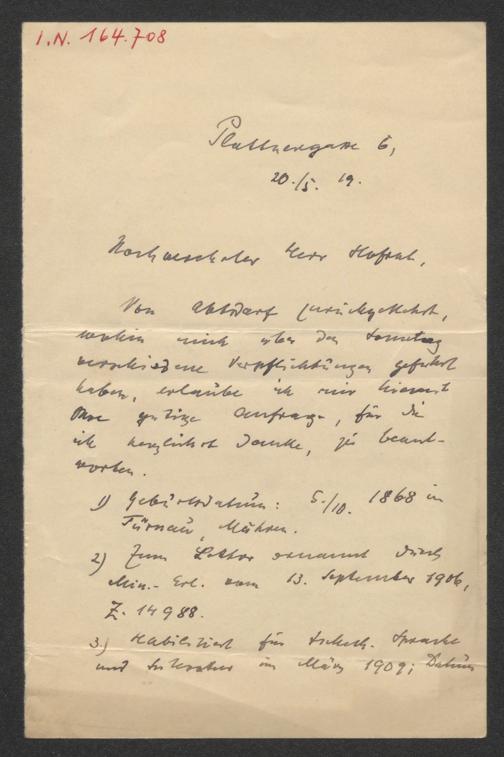 I.N. 164.708
Plattnergasse 6,
20./5. 19.
Hochverehrter Herr Hofrat,
Von Absdorf zurückgekehrt,
wohin mich über den Sonntag
verschiedene Verpflichtungen geführt
haben, erlaube ich mir hiermit
Ihre gütige Anfrage, für die
ich herzlichst danke, zu beant-
worten.
1) Geburtsdatum: 5./10. 1868 in
Türnau, Mähren.
2) Zum Lektor ernannt durch
Min.- Erl. vom 13. September 1906,
Z. 14988.
3.) Habilitiert für tschech. Sprache
und Literatur im März 1909; Datum